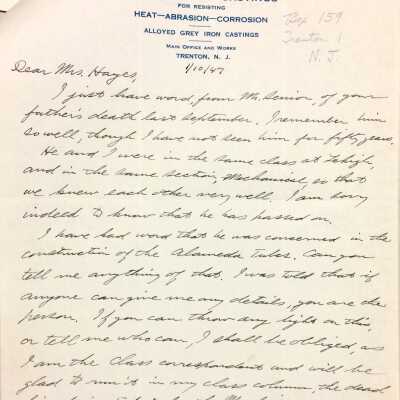 FOR RESISTING
HEAT—ABRASION—CORROSION
ALLOYED GREY IRON CASTINGS
MAIN OFFICE AND WORKS
TRENTON, N. J.
Box 159
Trenton 1
N. J.
1/10/47
Dear Mrs. Hayes,
I just have word, from Mr. Senior, of your
father's death last September. I remember him
so well, though I have not seen him for fifty years.
He and I were in the same class at Lehigh,
and in the same section, Mechanical, so that
we knew each other very well. I am sorry
indeed to know that he has passed on.
I have had word that he was concerned in the
construction of the Alameda tubes. Can you
tell me anything of that. I was told that if
anyone can give me any details, you are the
person. If you can throw any light on this,
or tell me who can, I shall be obliged, as
I am the class correspondent and will be
glad to run it in my class column, the dead